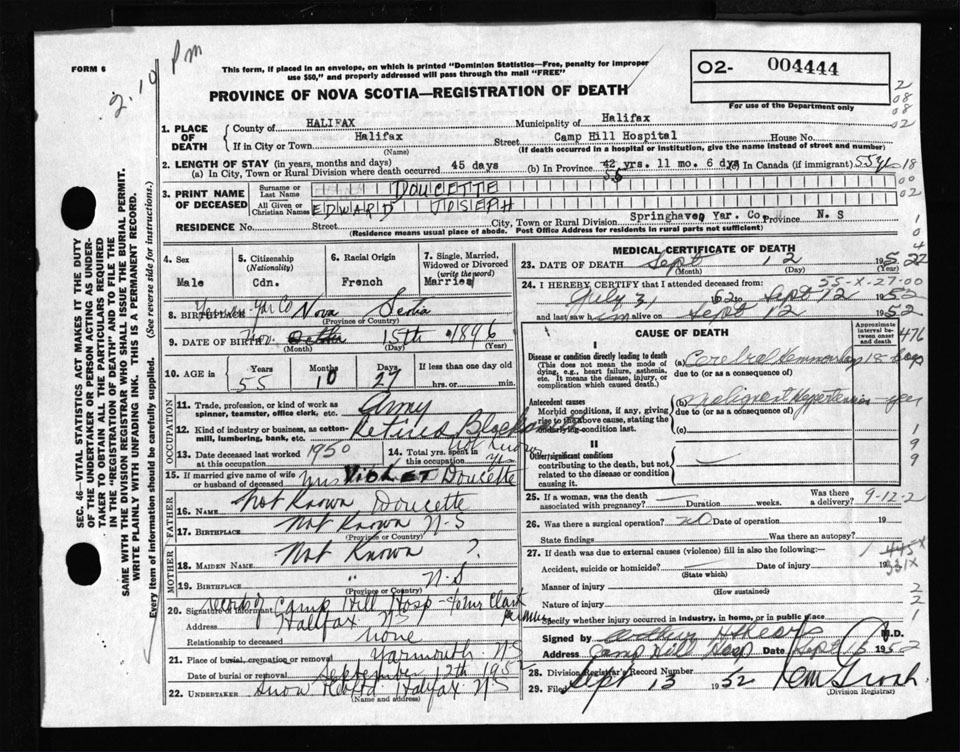 FORM 6
2.10 Pm
This form, if placed in an envelope, on which is printed "Dominion Statistics—Free, penalty for improper
use $50," and properly addressed will pass through the mail "FREE"
PROVINCE OF NOVA SCOTIA—REGISTRATION OF DEATH
02- 004444
For use of the Department only
1. PLACE OF DEATH
County of HALIFAX Municipality of Halifax
If in City or Town Halifax Street Camp Hill Hospital House No.
(Name) (If death occurred in a hospital or institution, give the name instead of street and number)
2. LENGTH OF STAY (in years, months and days)
(a) In City, Town or Rural Division where death occurred 45 days (b) In Province 42 yrs. 11 mo. 6 dys In Canada (if immigrant)
55
3. PRINT NAME OF DECEASED
Surname or Last Name DOUCETTE
All Given or Christian Names EDWARD JOSEPH
RESIDENCE No. Street City, Town or Rural Division Springhaven Yar. Co. Province N. S
(Residence means usual place of abode. Post Office Address for residents in rural parts not sufficient)
4. Sex
Male
5. Citizenship (Nationality)
Cdn.
6. Racial Origin
French
7. Single, Married, Widowed or Divorced (write the word)
Married
8. BIRTHPLACE Yar Co Nova Scotia
(Province or Country)
9. DATE OF BIRTH 15th 1896
(Month) (Day) (Year)
10. AGE in
Years 55 Months 10 Days 27
If less than one day old
hrs. or min.
OCCUPATION
11. Trade, profession, or kind of work as spinner, teamster, office clerk, etc. Army
12. Kind of industry or business, as cotton-mill, lumbering, bank, etc. Retired
13. Date deceased last worked at this occupation 1950
14. Total yrs. spent in this occupation
15. If married give name of wife or husband of deceased Mrs Violet Doucette
FATHER
16. NAME Not Known Doucette
17. BIRTHPLACE Not Known N-S
(Province or Country)
MOTHER
18. MAIDEN NAME Not Known ?
19. BIRTHPLACE " N-S
(Province or Country)
20. Signature of informant Records of Camp Hill Hosp
Address Halifax NS
Relationship to deceased none
21. Place of burial, cremation or removal Yarmouth N-S
Date of burial or removal September 12th 195
22. UNDERTAKER Snow Halifax N-S
(Name and address)
SEC. 46—VITAL STATISTICS ACT MAKES IT THE DUTY
OF THE UNDERTAKER OR PERSON ACTING AS UNDER-
TAKER TO OBTAIN ALL THE PARTICULARS REQUIRED
IN THE "REGISTRATION OF DEATH" AND TO FILE THE
SAME WITH THE DIVISION REGISTRAR WHO SHALL ISSUE THE BURIAL PERMIT.
WRITE PLAINLY WITH UNFADING INK. THIS IS A PERMANENT RECORD.
Every item of information should be carefully supplied. (See reverse side for instructions.)
MEDICAL CERTIFICATE OF DEATH
23. DATE OF DEATH Sept 12 1952
(Month) (Day) (Year)
55-X-27-00
24. I HEREBY CERTIFY that I attended deceased from:
July 31 1952 to Sept 12 1952
and last saw him on Sept 12 1952
CAUSE OF DEATH
Approximate interval between onset and death
I
Disease or condition directly leading to death
(This does not mean the mode of dying, e.g., heart failure, asthenia, etc. It means the disease, injury, or complication which caused death.)
(a) Cerebral Hemorrhage 18 days
due to (or as a consequence of)
Antecedent causes
Morbid conditions, if any, giving rise to the above cause, stating the underlying condition last.
(b) Malignant Hypertension year
due to (or as a consequence of)
(c)
II
Other significant conditions
contributing to the death, but not related to the disease or condition causing it.
25. If a woman, was the death associated with pregnancy? Duration weeks. Was there a delivery?
9-12-2
26. Was there a surgical operation? No Date of operation 19
State findings Was there an autopsy?
27. If death was due to external causes (violence) fill in also the following:—
Accident, suicide or homicide? Date of injury 19
(State which)
445X
331X
Manner of injury
(How sustained)
Nature of injury
Specify whether injury occurred in industry, in home, or in public place
Signed by M.D.
Address Camp Hill Hosp Date Sept 1952
28. Division Registrar's Record Number
29. Filed Sept 13 1952
(Division Registrar)